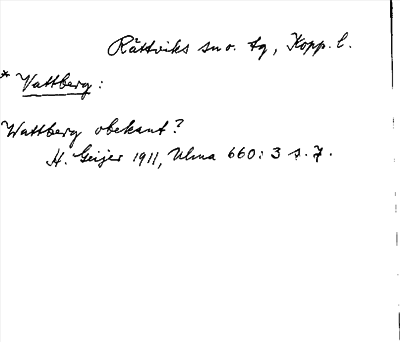 Rättviks sn o. tg, Kopp. l.
* Vattberg:
Wattberg obekant?
H. Geijer 1911, Ulma 660:3 s. 7.